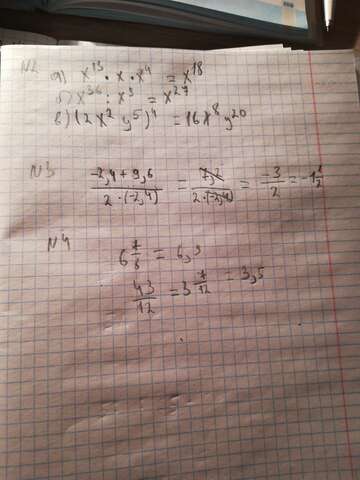 N2 a) x¹³ · x · x⁴ = x¹⁸
б) x³⁶ : x⁹ = x²⁷
в) (2x² y⁵)⁴ = 16x⁸y²⁰
N3 (-2,4 + 9,6)/(2 · (-2,4)) = 7,2/(2 · (-2,4)) = -3/2 = -1 1/2
N4
6 7/8 = 6,9
43/12 = 3 7/12 = 3,5